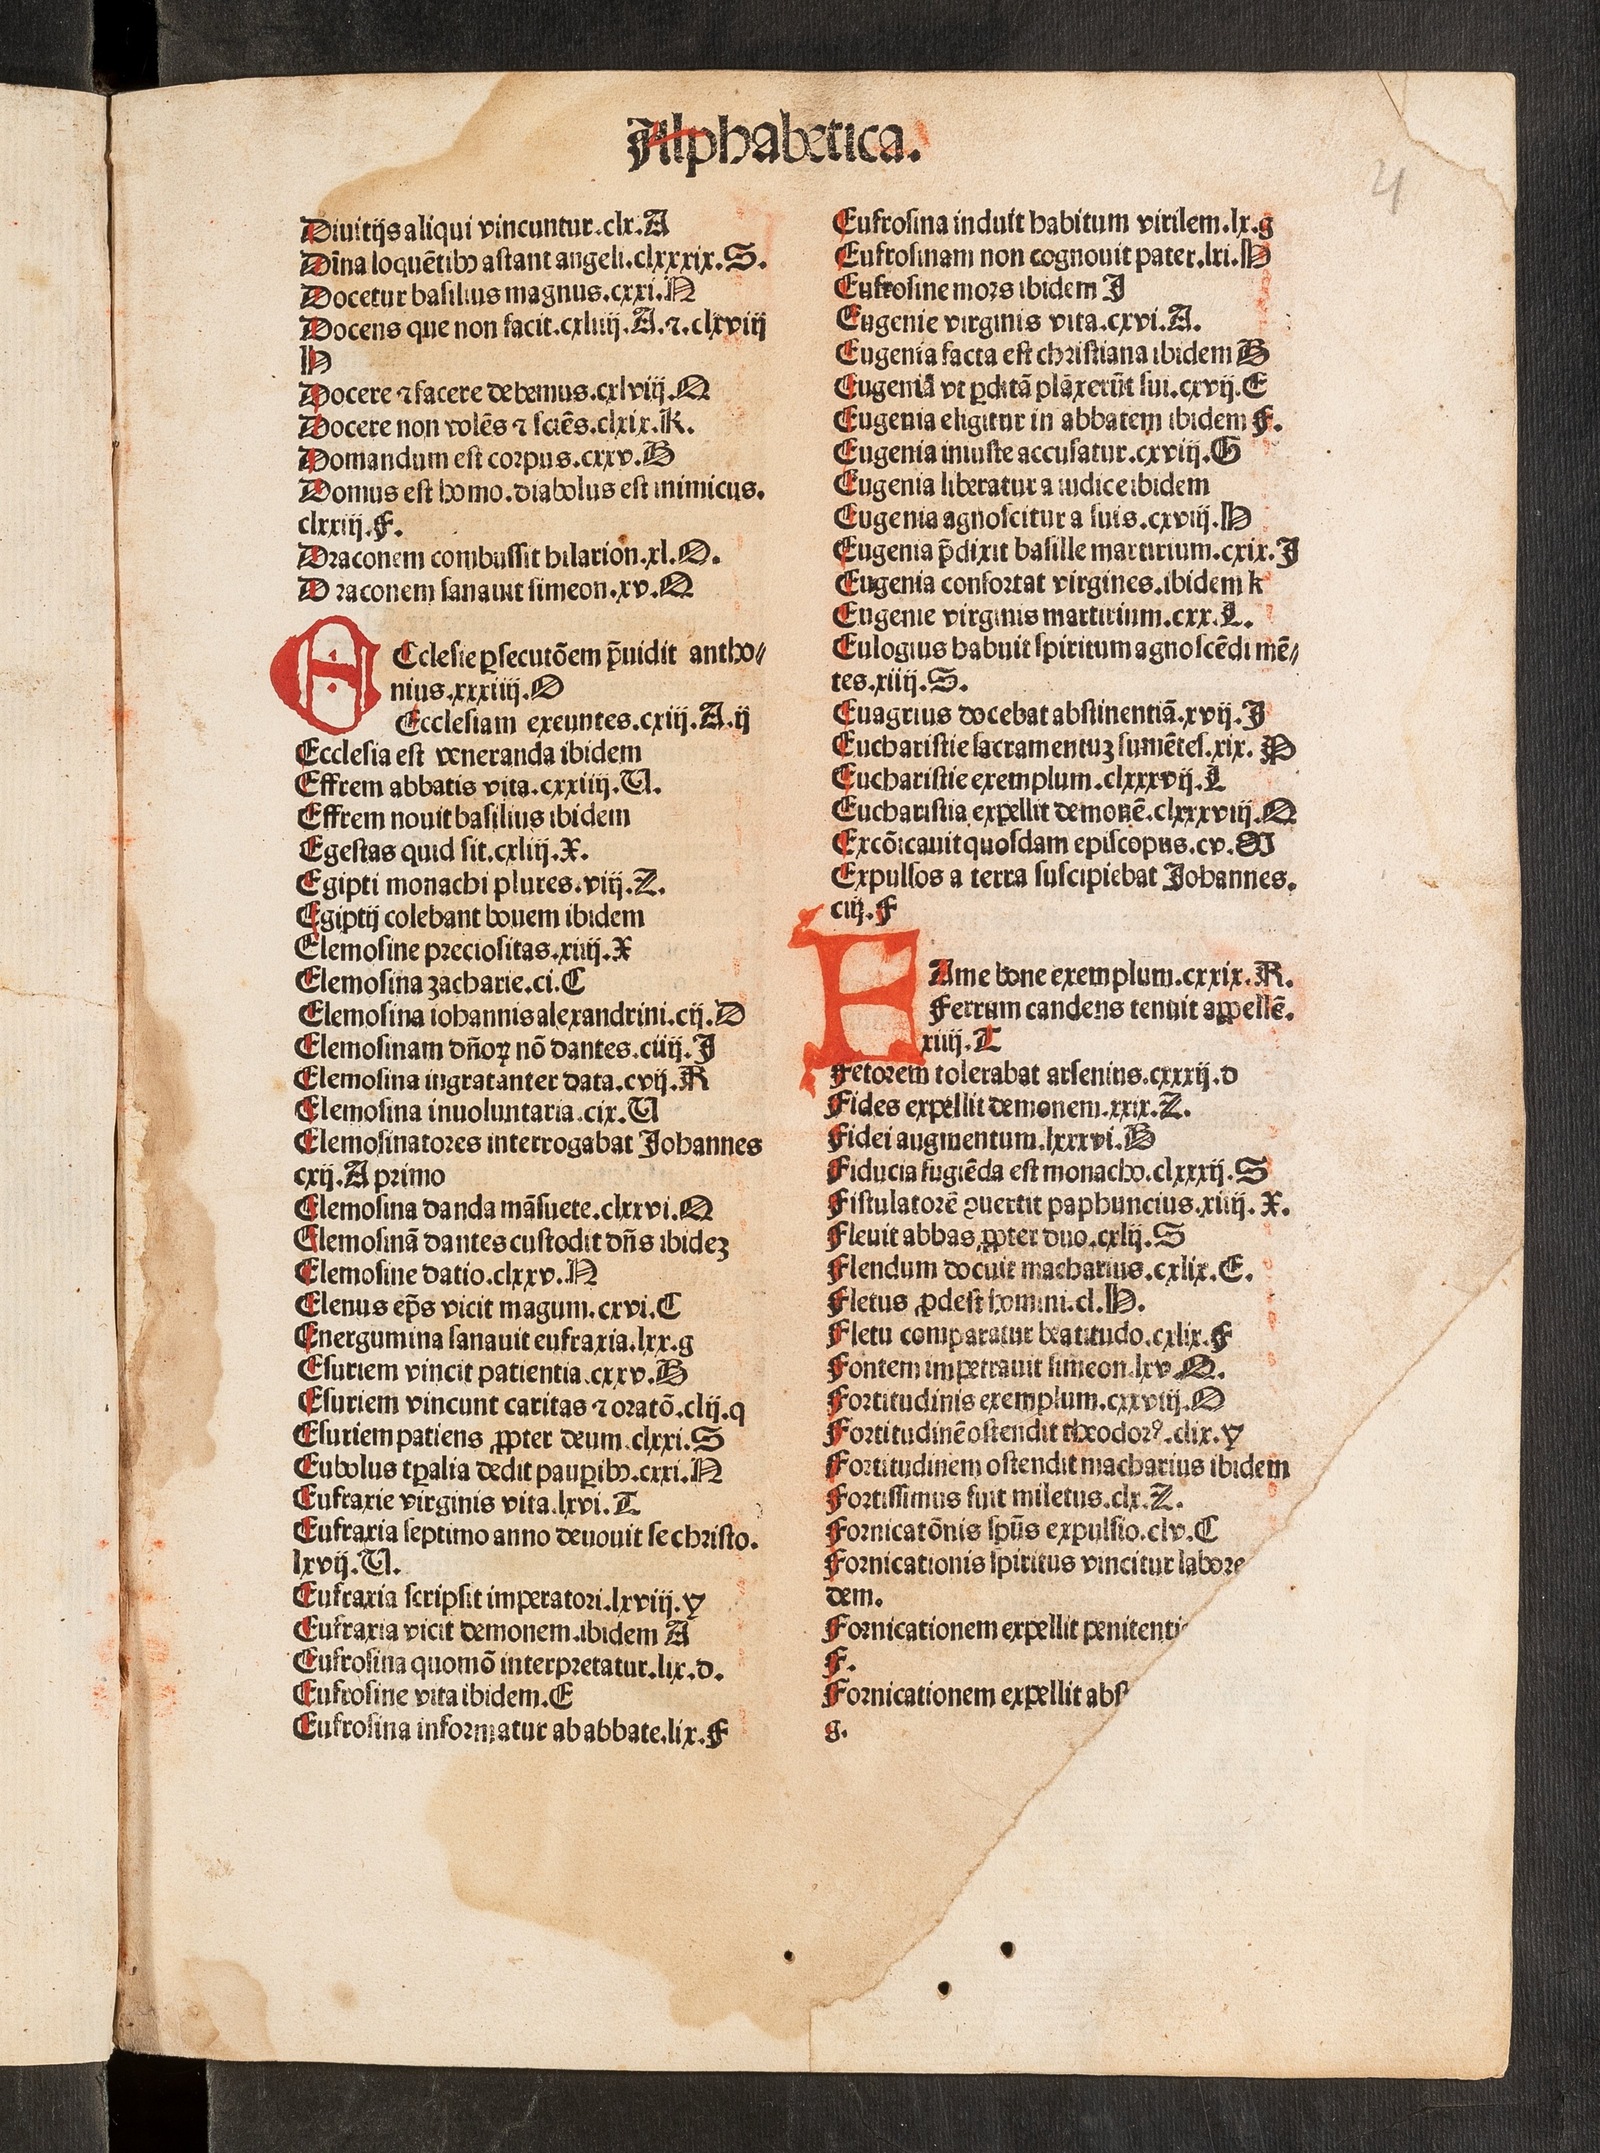 Alphabetica.
4
Diuitijs aliqui vincuntur.clx.A
Dīna loquētibꝫ astant angeli.clxxxix.S.
Docetur basilius magnus.cxxi.N
Docens que non facit.cxliiij.A.⁊.clxviij
H
Docere ⁊ facere debemus.cxlviij.Q
Docere non volēs ⁊ sciēs.clxix.K.
Domandum est corpus.cxxv.B
Domus est homo.diabolus est inimicus.
clxxiij.F.
Draconem combussit hilarion.xl.O.
Draconem sanauit simeon.xv.Q
ECclesie ꝑsecutōem p̄uidit antho⸗
nius.xxxiiij.O
Ecclesiam exeuntes.cxiij.A.ij
Ecclesia est veneranda ibidem
Effrem abbatis vita.cxxiiij.U.
Effrem nouit basilius ibidem
Egestas quid sit.cxliij.X.
Egipti monachi plures.viij.Z.
Egiptij colebant bouem ibidem
Elemosine preciositas.xiiij.X
Elemosina zacharie.ci.C
Elemosina iohannis alexandrini.cij.D
Elemosinam dn̄oꝝ nō dantes.ciiij.J
Elemosina ingratanter data.cvij.R
Elemosina inuoluntaria.cix.U
Elemosinatores interrogabat Johannes
cxij.A primo
Elemosina danda māsuete.clxxvi.Q
Elemosinā dantes custodit dn̄s ibideꝫ
Elemosine datio.clxxv.N
Elenus ep̄s vicit magum.cxvi.C
Energumina sanauit eufraxia.lxx.g
Esuriem vincit patientia.cxxv.B
Esuriem vincunt caritas ⁊ oratō.clij.q
Esuriem patiens ꝓpter deum.clxxi.S
Eubolus tꝑalia dedit pauꝑibꝫ.cxxi.N
Eufraxie virginis vita.lxvi.T
Eufraxia septimo anno deuouit se christo.
lxvij.U.
Eufraxia scripsit imperatori.lxviij.y
Eufraxia vicit demonem.ibidem A
Eufrosina quomō interpretatur.lix.d.
Eufrosine vita ibidem.E
Eufrosina informatur ab abbate.lix.F
Eufrosina induit habitum virilem.lx.g
Eufrosinam non cognouit pater.lxi.H
Eufrosine mors ibidem J
Eugenie virginis vita.cxvi.A.
Eugenia facta est christiana ibidem B
Eugeniā vt ꝑditā plāxerūt sui.cxvij.E
Eugenia eligitur in abbatem ibidem F.
Eugenia iniuste accusatur.cxviij.G
Eugenia liberatur a iudice ibidem
Eugenia agnoscitur a suis.cxviij.H
Eugenia p̄dixit basille martirium.cxix.J
Eugenia confortat virgines.ibidem k
Eugenie virginis martirium.cxx.L.
Eulogius habuit spiritum agnoscēdi mē⸗
tes.xiiij.S.
Euagrius docebat abstinentiā.xvij.J
Eucharistie sacramentuꝫ sumētes.xix.P
Eucharistie exemplum.clxxxvij.L
Eucharistia expellit demonē.clxxxviij.Q
Excōicauit quosdam episcopus.cv.M
Expulsos a terra suscipiebat Johannes.
ciij.F
FAme bone exemplum.cxxix.R.
Ferrum candens tenuit appellē.
xiiij.T
Fetorem tolerabat arsenius.cxxxij.d
Fides expellit demonem.xxix.Z.
Fidei augmentum.lxxxvi.B
Fiducia fugiēda est monacho.clxxxij.S
Fistulatorē ꝯuertit paphuncius.xiiij.X.
Fleuit abbas ꝓpter duo.cxlij.S
Flendum docuit macharius.cxlix.E.
Fletus ꝓdest homini.cl.H.
Fletu comparatur beatitudo.cxlix.F
Fontem impetrauit simeon.lxv.Q.
Fortitudinis exemplum.cxxviij.O
Fortitudinē ostendit theodorꝰ.clix.y
Fortitudinem ostendit macharius ibidem
Fortissimus fuit miletus.clx.Z.
Fornicatōnis spūs expulsio.clv.C
Fornicationis spiritus vincitur labore
dem.
Fornicationem expellit penitenti
F.
Fornicationem expellit abs
g.